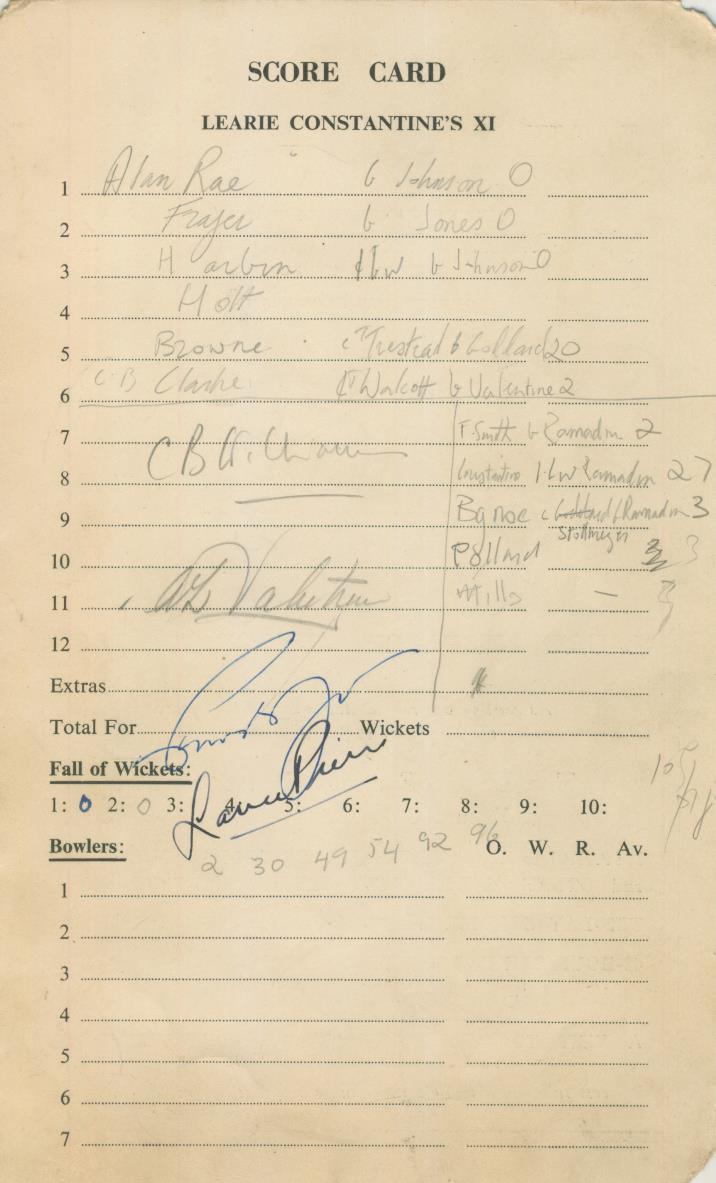 SCORE CARD
LEARIE CONSTANTINE'S XI
1 Alan Rae b Johnson 0
2 Frazer b Jones 0
3 Harbin lbw b Johnson 0
4 Holt
5 Browne c Trestrail b Gollard 20
6 C B Clarke Walcott b Valentine 2
7 F. Smith b Ramadin 2
8 C B Williams Constantine lbw Ramadin 27
9 c Goddard b Ramadin 3
Stollmeyer
10 Pollard 3
11 Valentine Mills – 3
12
Extras
Total For Wickets
Fall of Wickets:
1: 0 2: 0 3: 4: 5: 6: 7: 8: 9: 10:
Bowlers: O. W. R. Av.
2 30 49 54 92 96
1
2
3
4
5
6
7